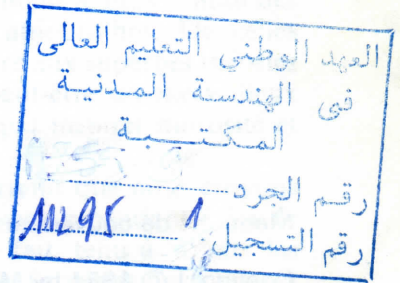 العهد الوطني التعليم العالى
فى الهندسة المدنية
المكتبة
رقم الجرد 1
رقم التسجيل 11295